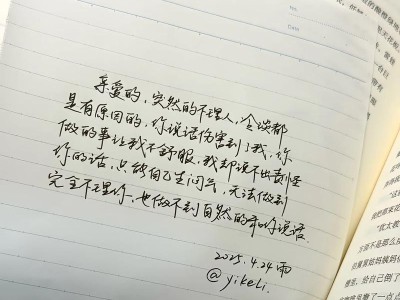 No.
Date
亲爱的,突然的不理人,冷淡都
是有原因的,你说话伤害到了我,你
做的事让我不舒服,我却说不出责怪
你的话,只能自己生闷气,无法做到
完全不理你,也做不到自然的和你说话.
2025.4.24 雨
@yikeli.